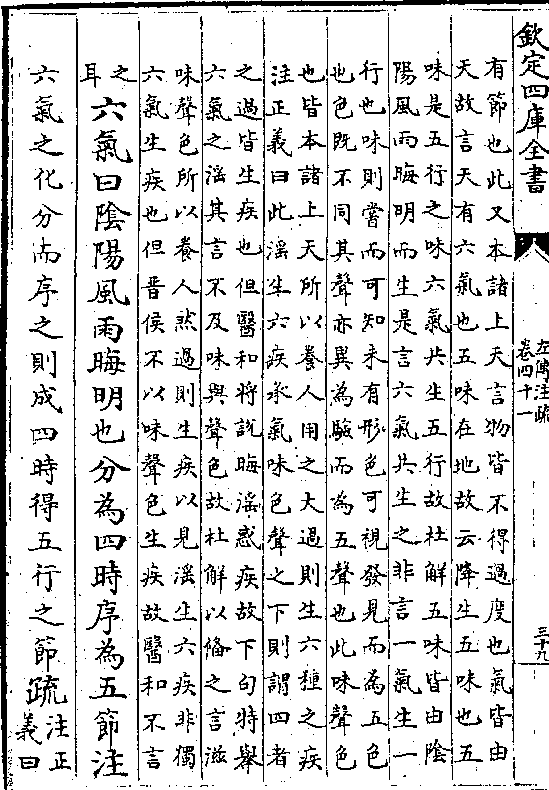 欽定四庫全書
左傳注疏
卷四十一
三十九
有節也此又本諸上天言物皆不得過度也氣皆由
天故言天有六氣也五味在地故云降生五味也五
味是五行之味六氣共生五行故杜解五味皆由陰
陽風雨晦明而生是言六氣共生之非言一氣生一
行也味則嘗而可知未有形色可視發見而為五色
也色既不同其聲亦異為驗而為五聲也此味聲色
也皆本諸上天所以養人用之大過則生六種之疾
注正義曰此淫生六疾承氣味色聲之下則謂四者
之過皆生疾也但醫和將說晦淫惑疾故下句特舉
六氣之淫其言不及味與聲色故杜解以偹之言滋
味聲色所以養人然過則生疾以見淫生六疾非獨
六氣生疾也但晉侯不以味聲色生疾故醫和不言
之耳六氣曰陰陽風雨晦明也分為四時序為五節注
六氣之化分而序之則成四時得五行之節疏注正義曰